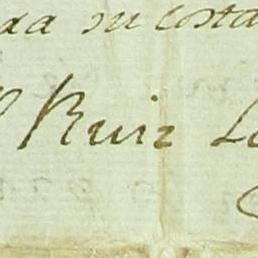 da su costa
Ruiz